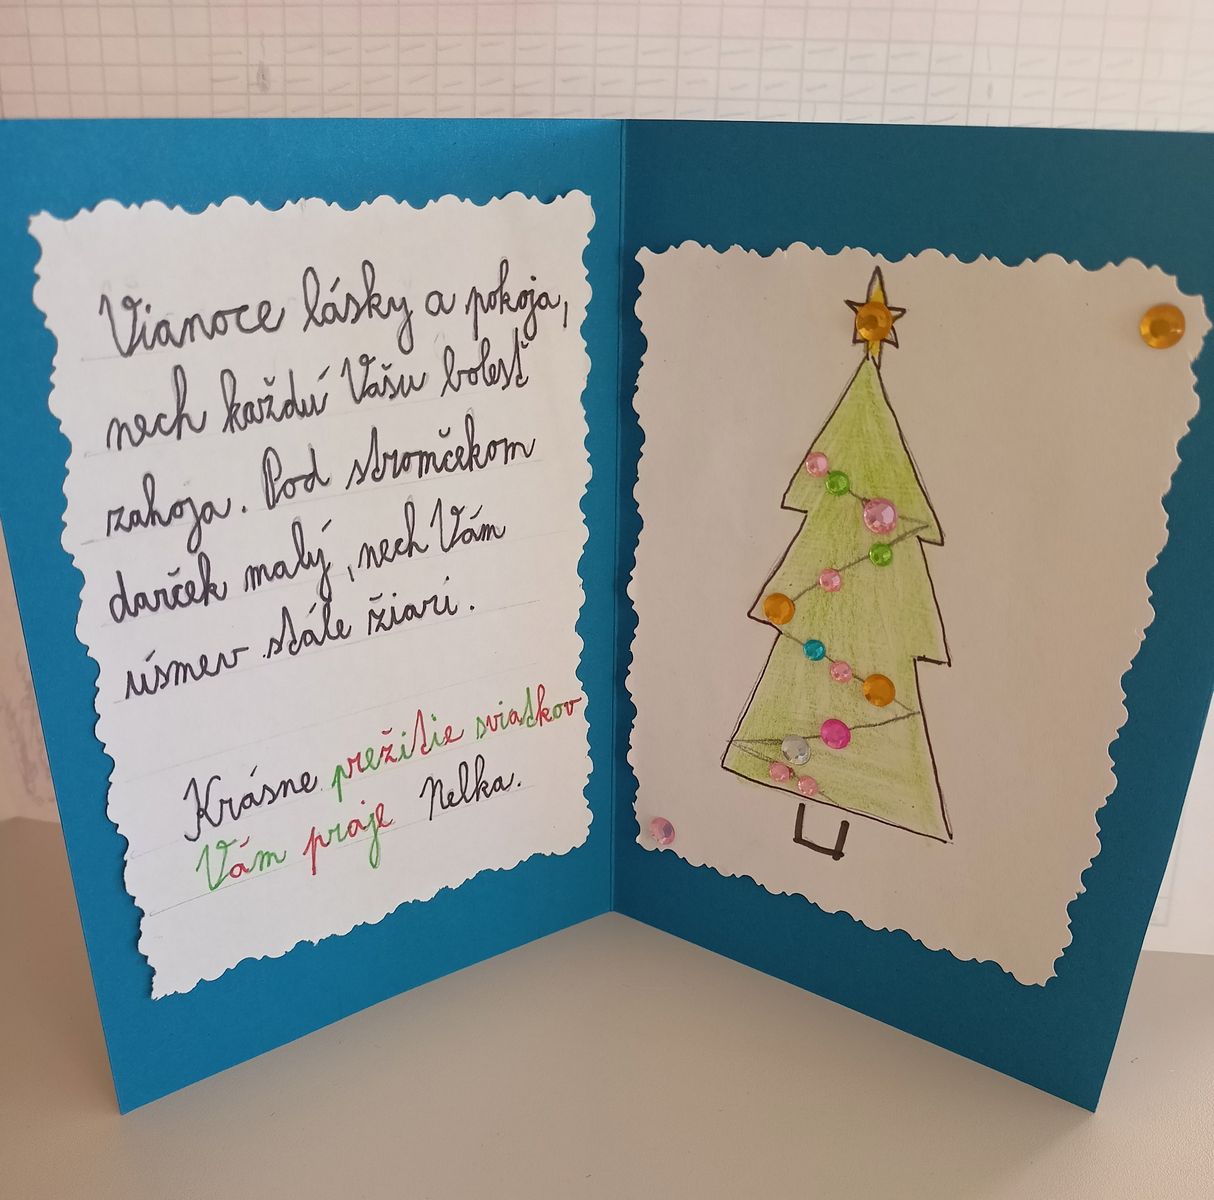 Vianoce lásky a pokoja,
nech každú Vašu bolesť
zahoja. Pod stromčekom
darček malý, nech Vám
úsmev stále žiari.
Krásne prežitie sviatkov
Vám praje Nelka.